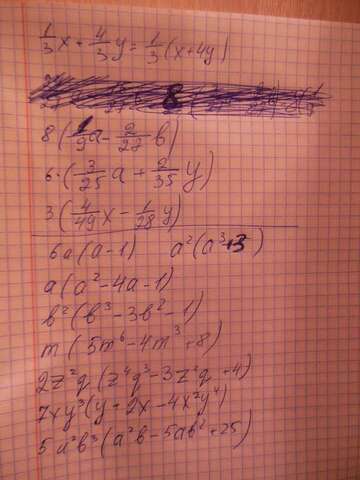 1/3 x + 4/3 y = 1/3 (x+4y)
8
8 (1/9 a - 2/27 b)
6·(3/25 a + 2/35 y)
3 (4/49 x - 1/28 y)
6a(a-1) a²(a³+3)
a(a²-4a-1)
b²(b³-3b²-1)
m(5m⁶-4m³+8)
2z²q(z⁴q³-3z²q+4)
7xy³(y+2x-4x²y⁴)
5a²b³(a²b-5ab²+25)